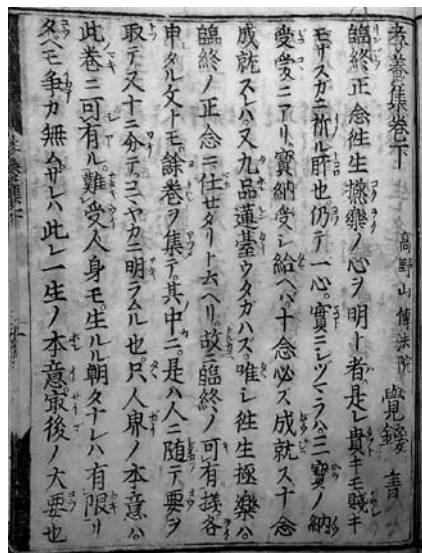 孝養集巻下
高野山傳法院 覺鑁 書
臨終正念徃生極樂ノ心ヲ明ト者是レ貴キモ賤キ
モサスカニ祢ル肝也仍テ一心實ニシツマラハ三寳ノ納
受愛ニアリ寳納受シ給ヘハ十念必ス成就ス十念
成就スレハ又九品蓮臺ウタガハズ唯シ徃生極樂ハ
臨終ノ正念ニ任セタリト云ヘリ故ニ臨終ノ可有様各
申タル文トモ餘巻ヲ集テ其中ニ是ハ人ニ随テ要ヲ
取テ又十二分テコマヤカニ明ラムル也只人界ノ本意ハ
此巻ニ可有ル難受人身モ生ルル朝タナレハ有限リ
タヘモ争カ無ムサレハ此レ一生ノ本意寂後ノ大要也